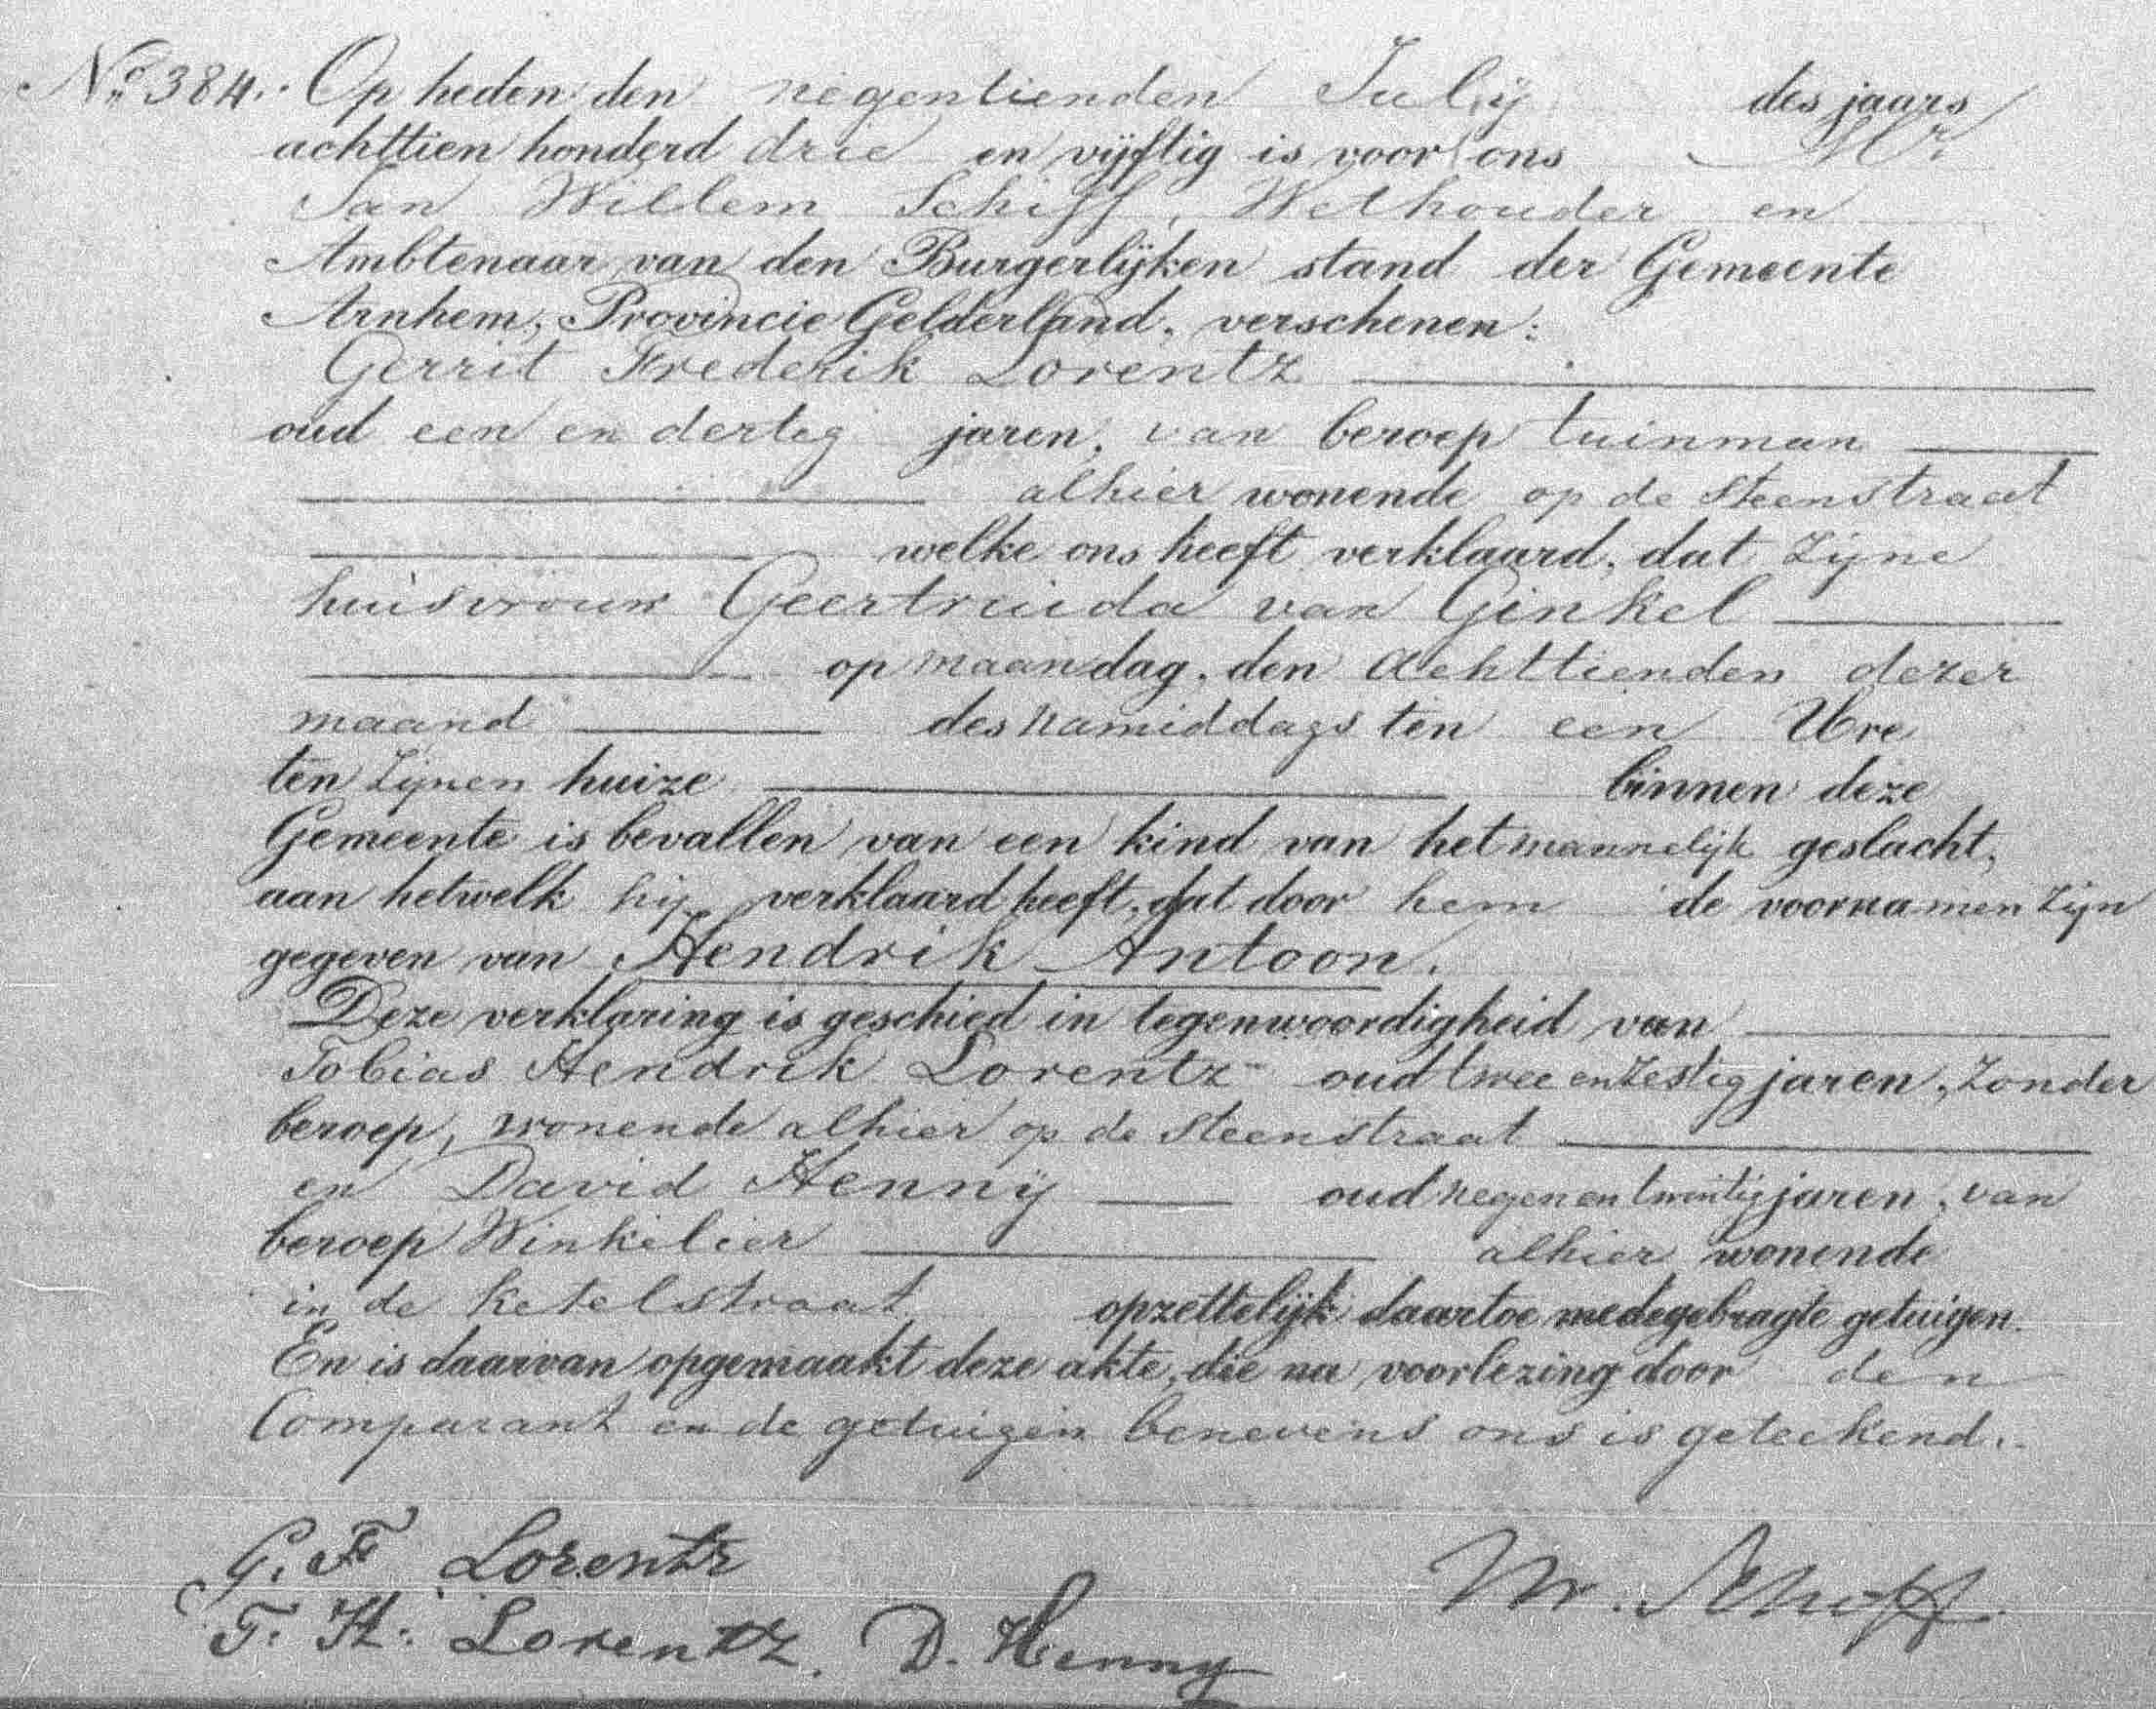 No 384. Op heden den negentienden Julij des jaars
achttien honderd drie en vijftig is voor ons Mr.
Jan Willem Schiff, Wethouder en
Ambtenaar van den Burgerlijken stand der Gemeente
Arnhem, Provincie Gelderland, verschenen:
Gerrit Frederik Lorentz
oud een en dertig jaren, van beroep tuinman
alhier wonende op de Steenstraat
welke ons heeft verklaard, dat zijne
huisvrouw Geertruida van Ginkel
op maandag, den achttienden dezer
maand des namiddags ten een Ure
ten zijnen huize binnen deze
Gemeente is bevallen van een kind van het mannelijk geslacht,
aan hetwelk hij verklaard heeft, dat door hem de voornamen zijn
gegeven van Hendrik Antoon.
Deze verklaring is geschied in tegenwoordigheid van
Tobias Hendrik Lorentz oud twee en zestig jaren, zonder
beroep, wonende alhier op de Steenstraat
en David Hennij oud negen en twintig jaren, van
beroep Winkelier alhier wonende
in de Ketelstraat opzettelijk daartoe medegebragte getuigen.
En is daarvan opgemaakt deze akte, die na voorlezing door den
Comparant en de getuigen benevens ons is geteekend.
G. F Lorentz
T. H. Lorentz. D. Henny Mr. Schiff